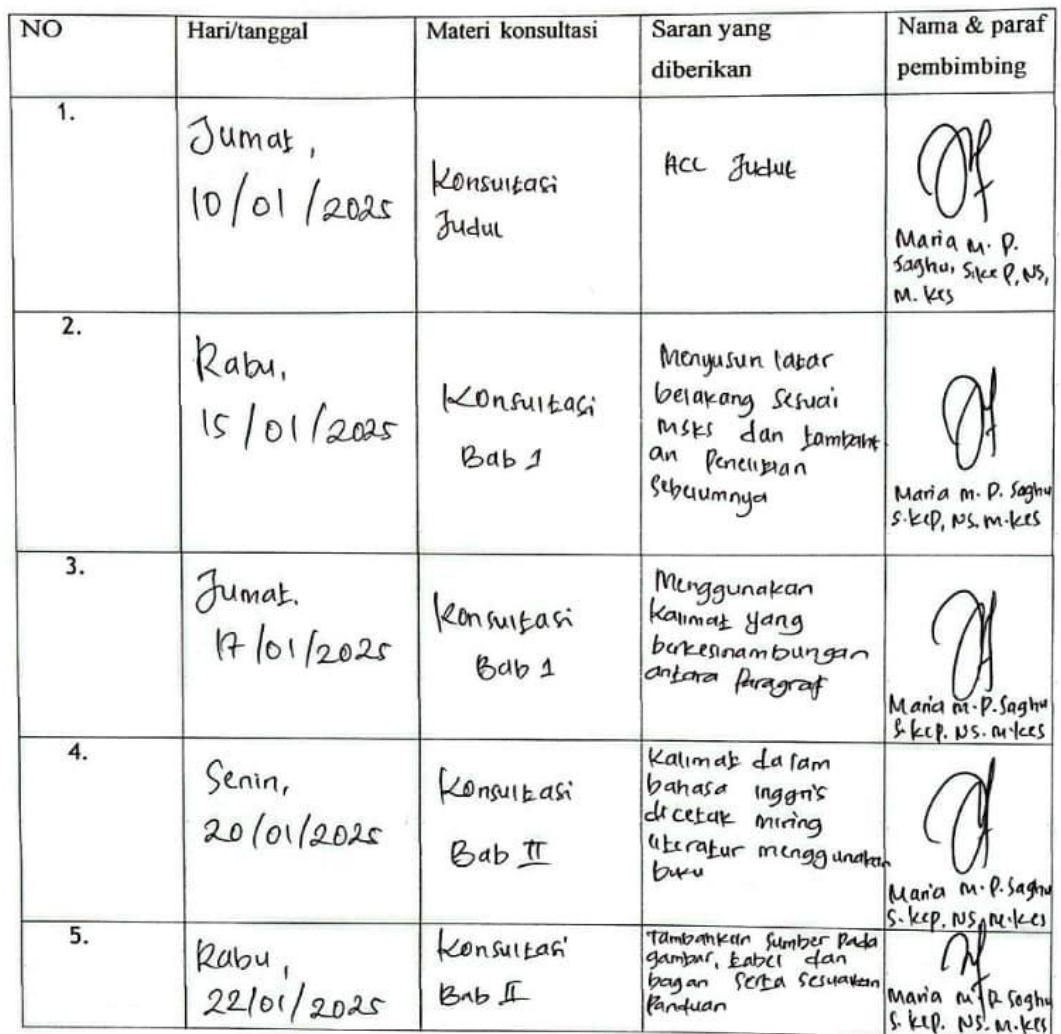 NO Hari/tanggal Materi konsultasi Saran yang Nama & paraf
diberikan pembimbing
1.
Jumat,
10/01/2025
Konsultasi
Judul
ACC Judul
Maria M. P.
Saghu, S.Kep, NS,
M. Kes
2.
Rabu,
15/01/2025
Konsultasi
Bab 1
Menyusun latar
belakang sesuai
MSKS dan tambahk
an Penelitian
Sebelumnya
Maria M. P. Saghu
S.Kep, NS. M.Kes
3.
Jumat.
17/01/2025
Konsultasi
Bab 1
Menggunakan
Kalimat yang
berkesinambungan
antara Paragraf
Maria M.P. Saghu
S.Kep. NS. M.Kes
4.
Senin,
20/01/2025
Konsultasi
Bab II
Kalimat dalam
bahasa inggris
di cetak miring
literatur menggunakan
buku
Maria M.P. Saghu
S.Kep. NS, M.Kes
5.
Rabu,
22/01/2025
Konsultasi
Bab II
Tambahkan Sumber Pada
gambar, tabel dan
bagan serta sesuaikan
Panduan
Maria M P. Saghu
S. Kep. NS. M.Kes